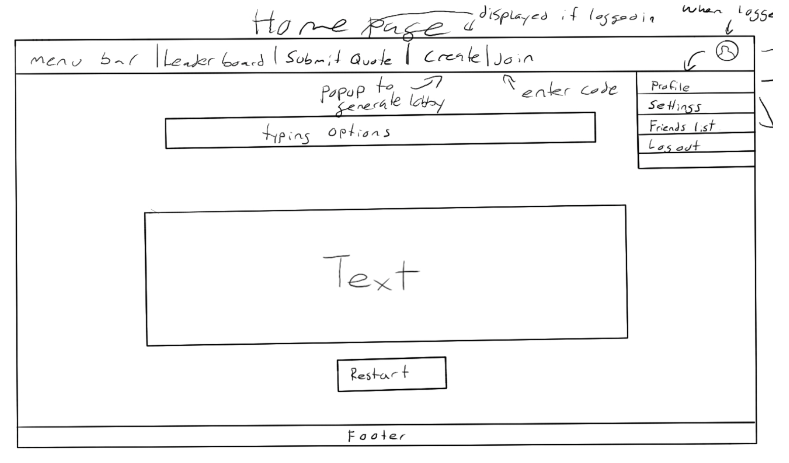 Home page
displayed if logged in
when logge
menu bar | Leaderboard | Submit Quote | Create | Join
popup to
generate lobby
enter code
Profile
Settings
Friends list
Logout
typing options
Text
Restart
Footer